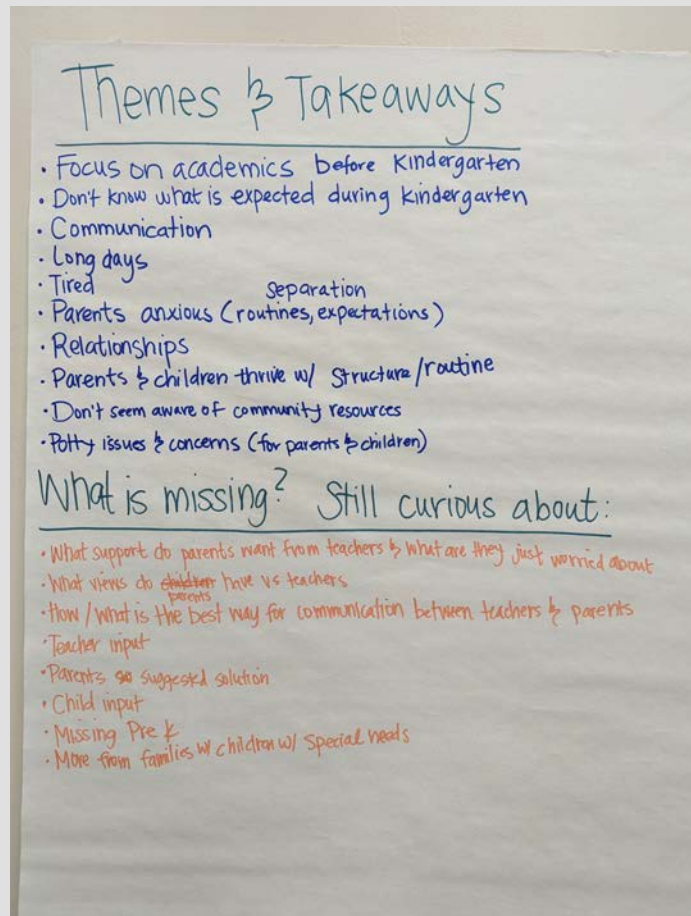 Themes & Takeaways
• Focus on academics before Kindergarten
• Don't know what is expected during kindergarten
• Communication
• Long days
• Tired
separation
• Parents anxious (routines, expectations)
• Relationships
• Parents & children thrive w/ structure/routine
• Don't seem aware of community resources
• Potty issues & concerns (for parents & children)
What is missing? Still curious about:
• What support do parents want from teachers & what are they just worried about
• What views do children have vs teachers
parents
• How / What is the best way for communication between teachers & parents
• Teacher input
• Parents suggested solution
• Child input
• Missing Pre K
• More from families w/ children w/ special needs